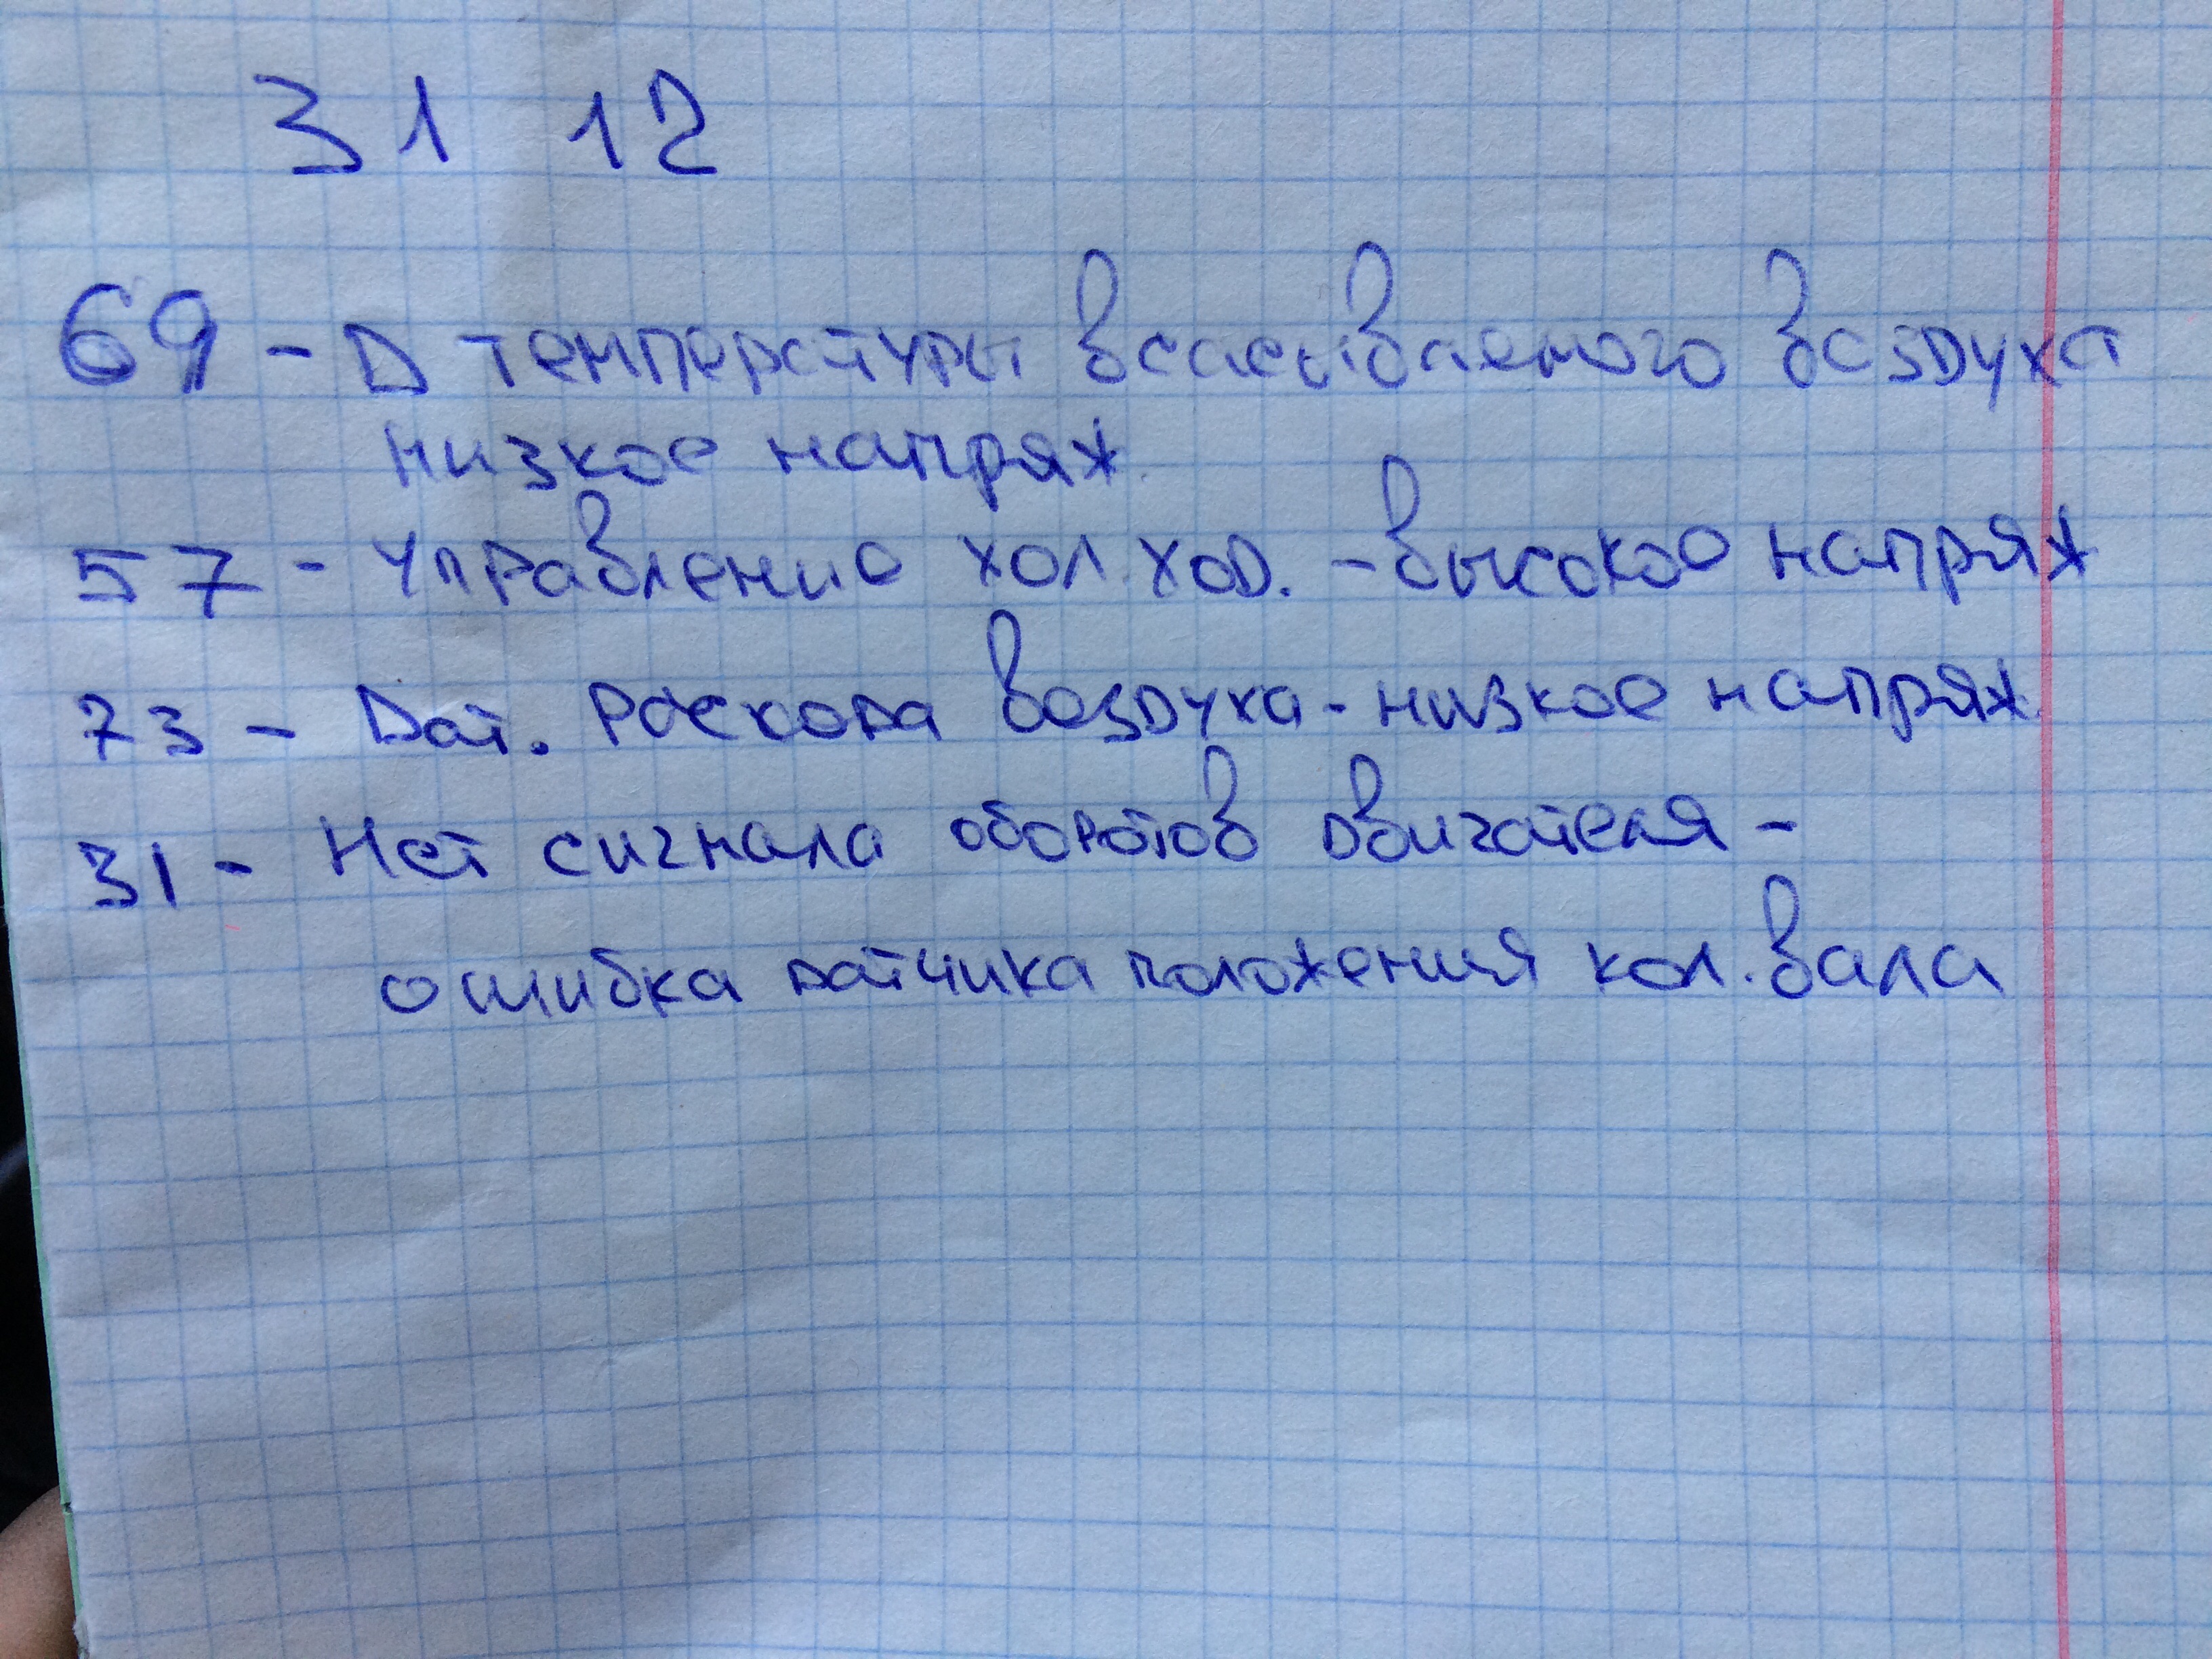 31 12
69 - D температуры всасываемого воздуха
низкое напряж.
57 - Управление хол. ход. - высокое напряж
73 - Dат. Расхода воздуха - низкое напряж.
31 - Нет сигнала оборотов двигателя -
ошибка датчика положения кол. вала